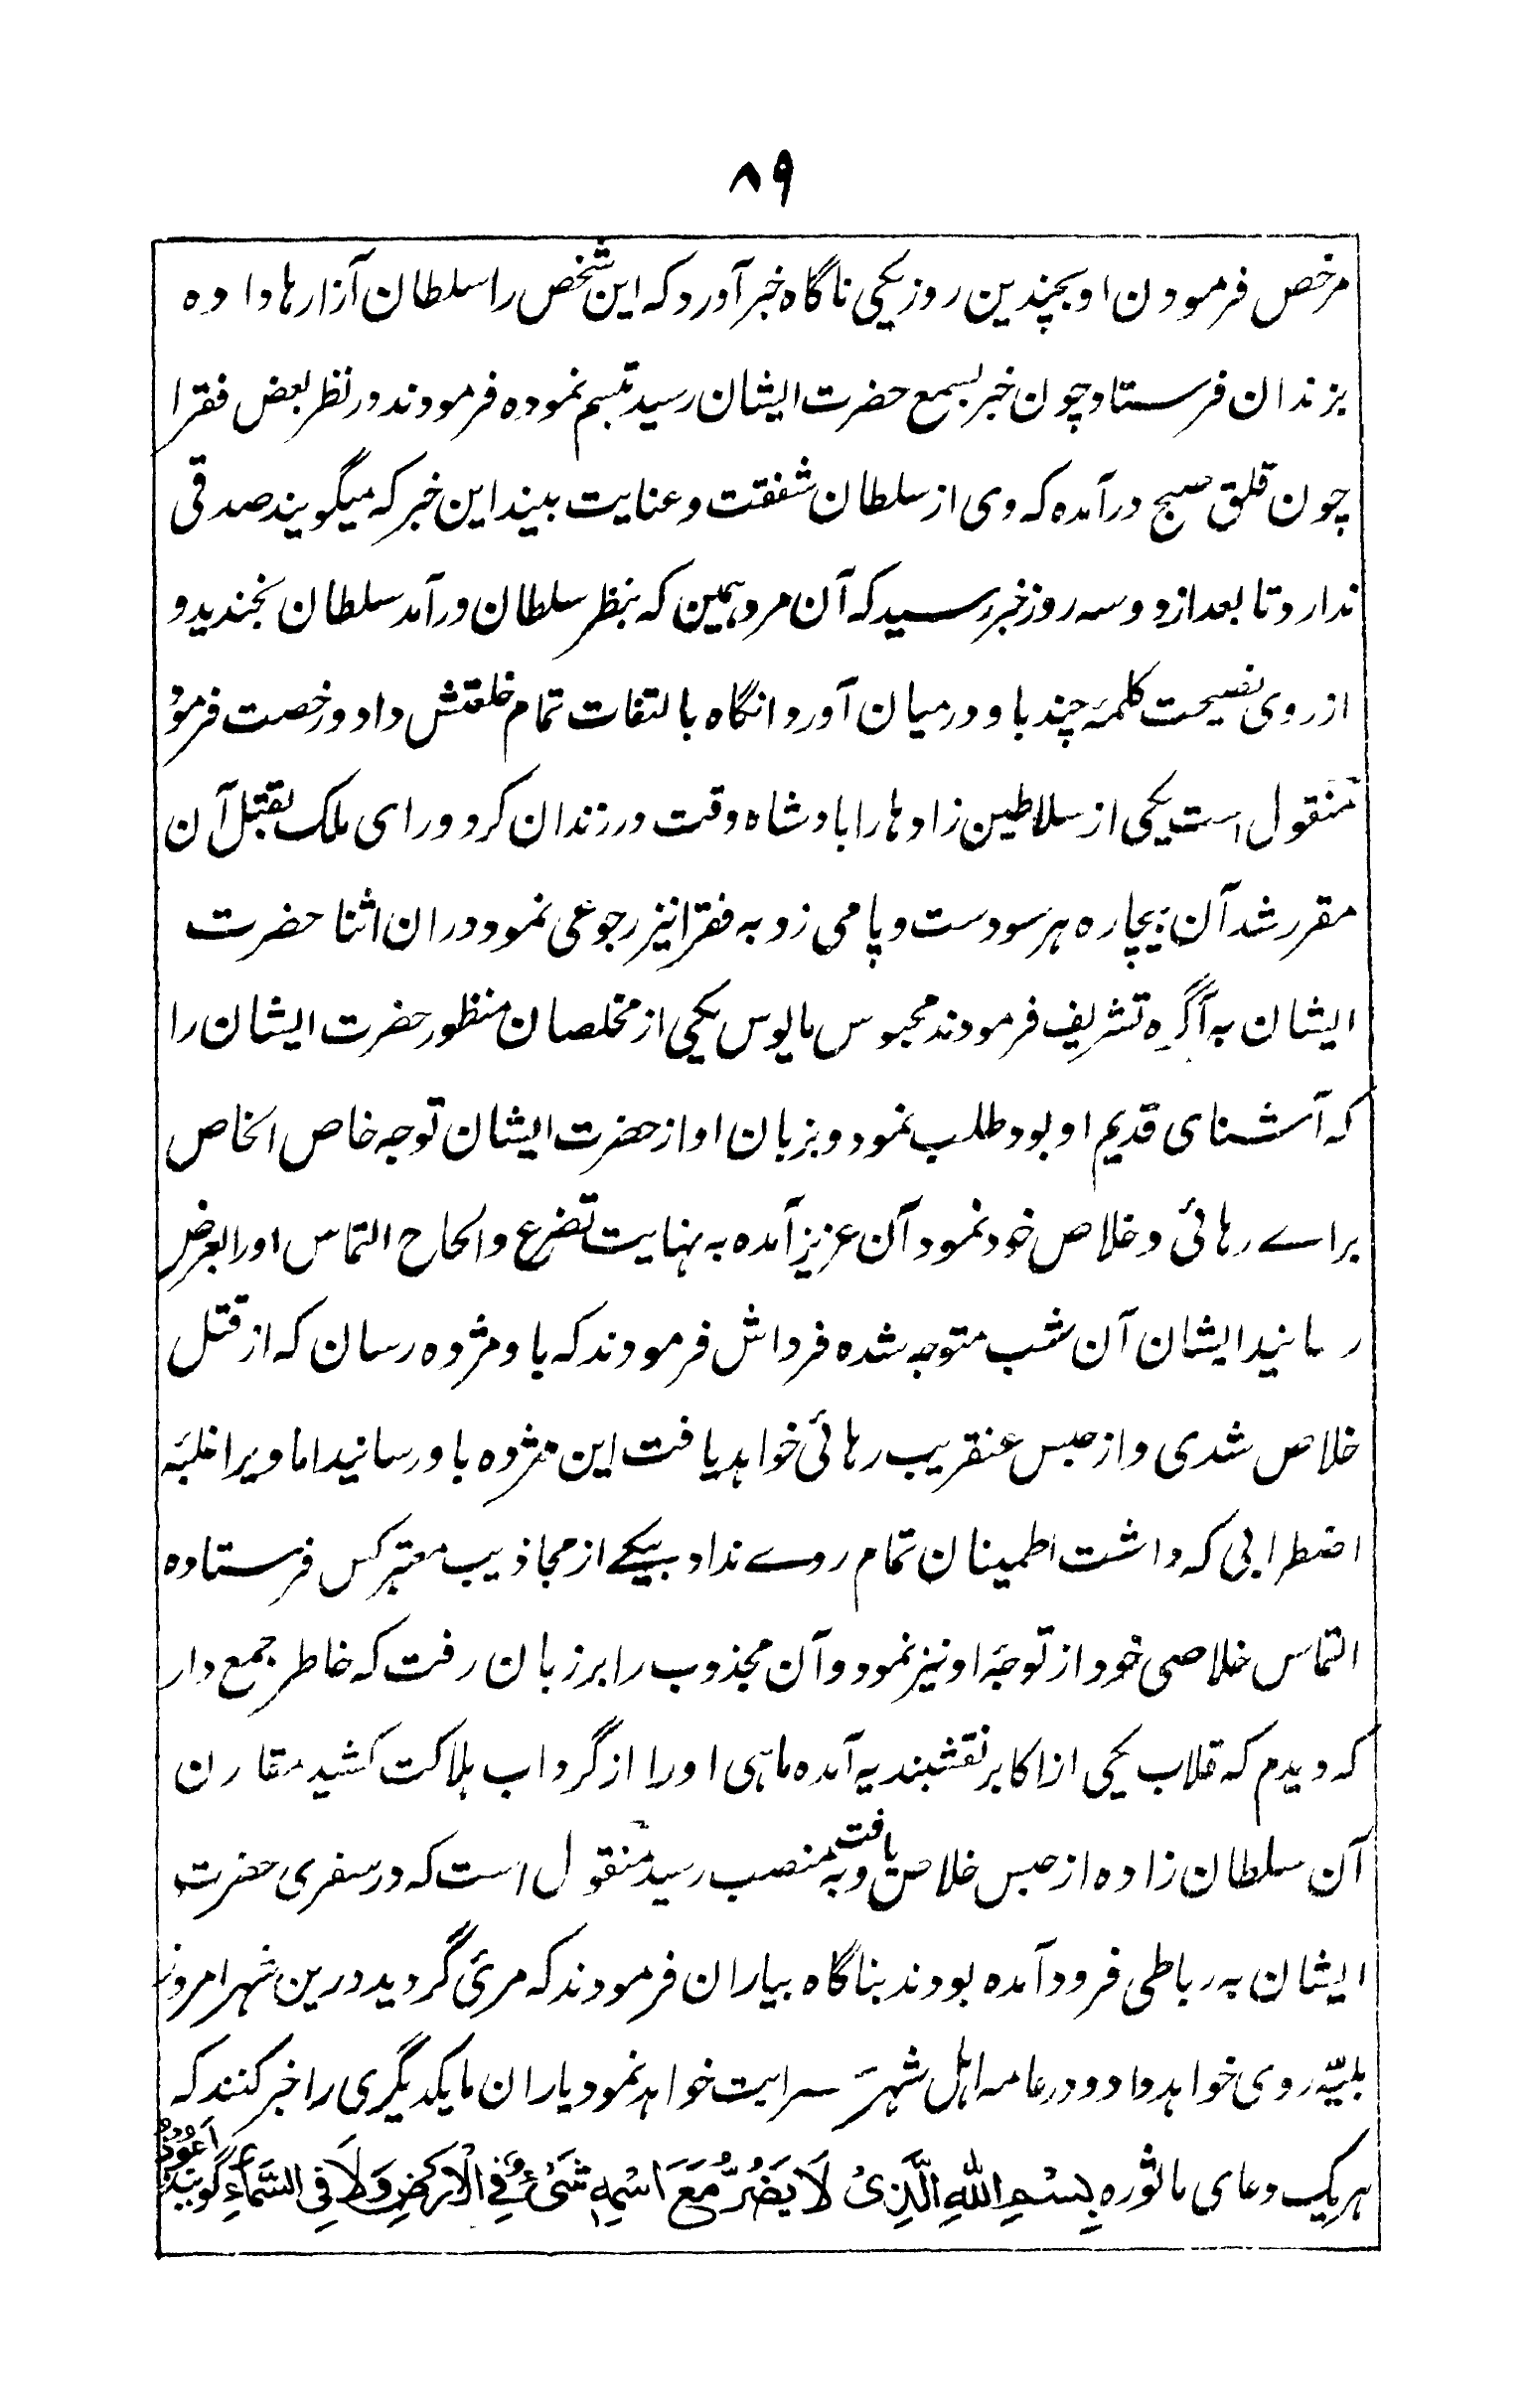 ۸۹
مرخص فرمودن او بچندین روز یکی ناگاه خبر آورد که این شخص را سلطان آزارها داده
بزندان فرستاد چون خبر بسمع حضرت ایشان رسید تبسم نموده فرمودند در نظر بعض فقرا
چون فلق صبح درآمده که وی از سلطان شفقت و عنایت بیند این خبر که میگویند صدقی
ندارد تا بعد از دو سه روز خبر رسید که آن مرد همین که بنظر سلطان درآمد سلطان بخندید و
از روی نصیحت کلمۀ چند باو درمیان آورد انگاه بالتفات تمام خلعتش داد و رخصت فرمود
منقول است یکی از سلاطین زادها را بادشاه وقت در زندان کرد و رای ملک بقتل آن
مقرر شد آن بیچاره هر سو دست و پا می زد به فقرا نیز رجوعی نمود دران اثنا حضرت
ایشان به آگره تشریف فرمودند محبوس مایوس یکی از مخلصان منظور حضرت ایشان را
که آشنای قدیم او بود طلب نمود و بزبان او از حضرت ایشان توجه خاص الخاص
براے رهائی و خلاص خود نمود آن عزیز آمده به نهایت تضرع و الحاح التماس اورا بعرض
رسانید ایشان آن شب متوجه شده فرداش فرمودند که باو مژده رسان که از قتل
خلاص شدی و از حبس عنقریب رهائی خواهد یافت این مژده باو رسانید اما ویرا غلبۀ
اضطرابی که داشت اطمینان تمام روے نداد بیکے از مجاذیب معتبر کس فرستاده
التماس خلاصی خود از توجۀ او نیز نمود و آن مجذوب را بر زبان رفت که خاطر جمع دار
که دیدم که قلاب یکی از اکابر نقشبندیه آمده ماهی او را از گرداب هلاکت کشید مقارن
آن سلطان زاده از حبس خلاص یافت و به منصب رسید منقول است که در سفری حضرت
ایشان به رباطی فرود آمده بودند بناگاه بیاران فرمودند که مرئ گردید درین شهر امروز
بلیّه روی خواهد داد و در عامه اهل شهر سرایت خواهد نمود یاران ما یکدیگری را خبر کنند که
هر یک دعای ماثوره بِسْمِ اللهِ الَّذِیْ لَا یَضُرُّ مَعَ اسْمِهٖ شَیْءٌ فِی الْاَرْضِ وَلَا فِی السَّمَآءِ گویند اَعُوْذُ